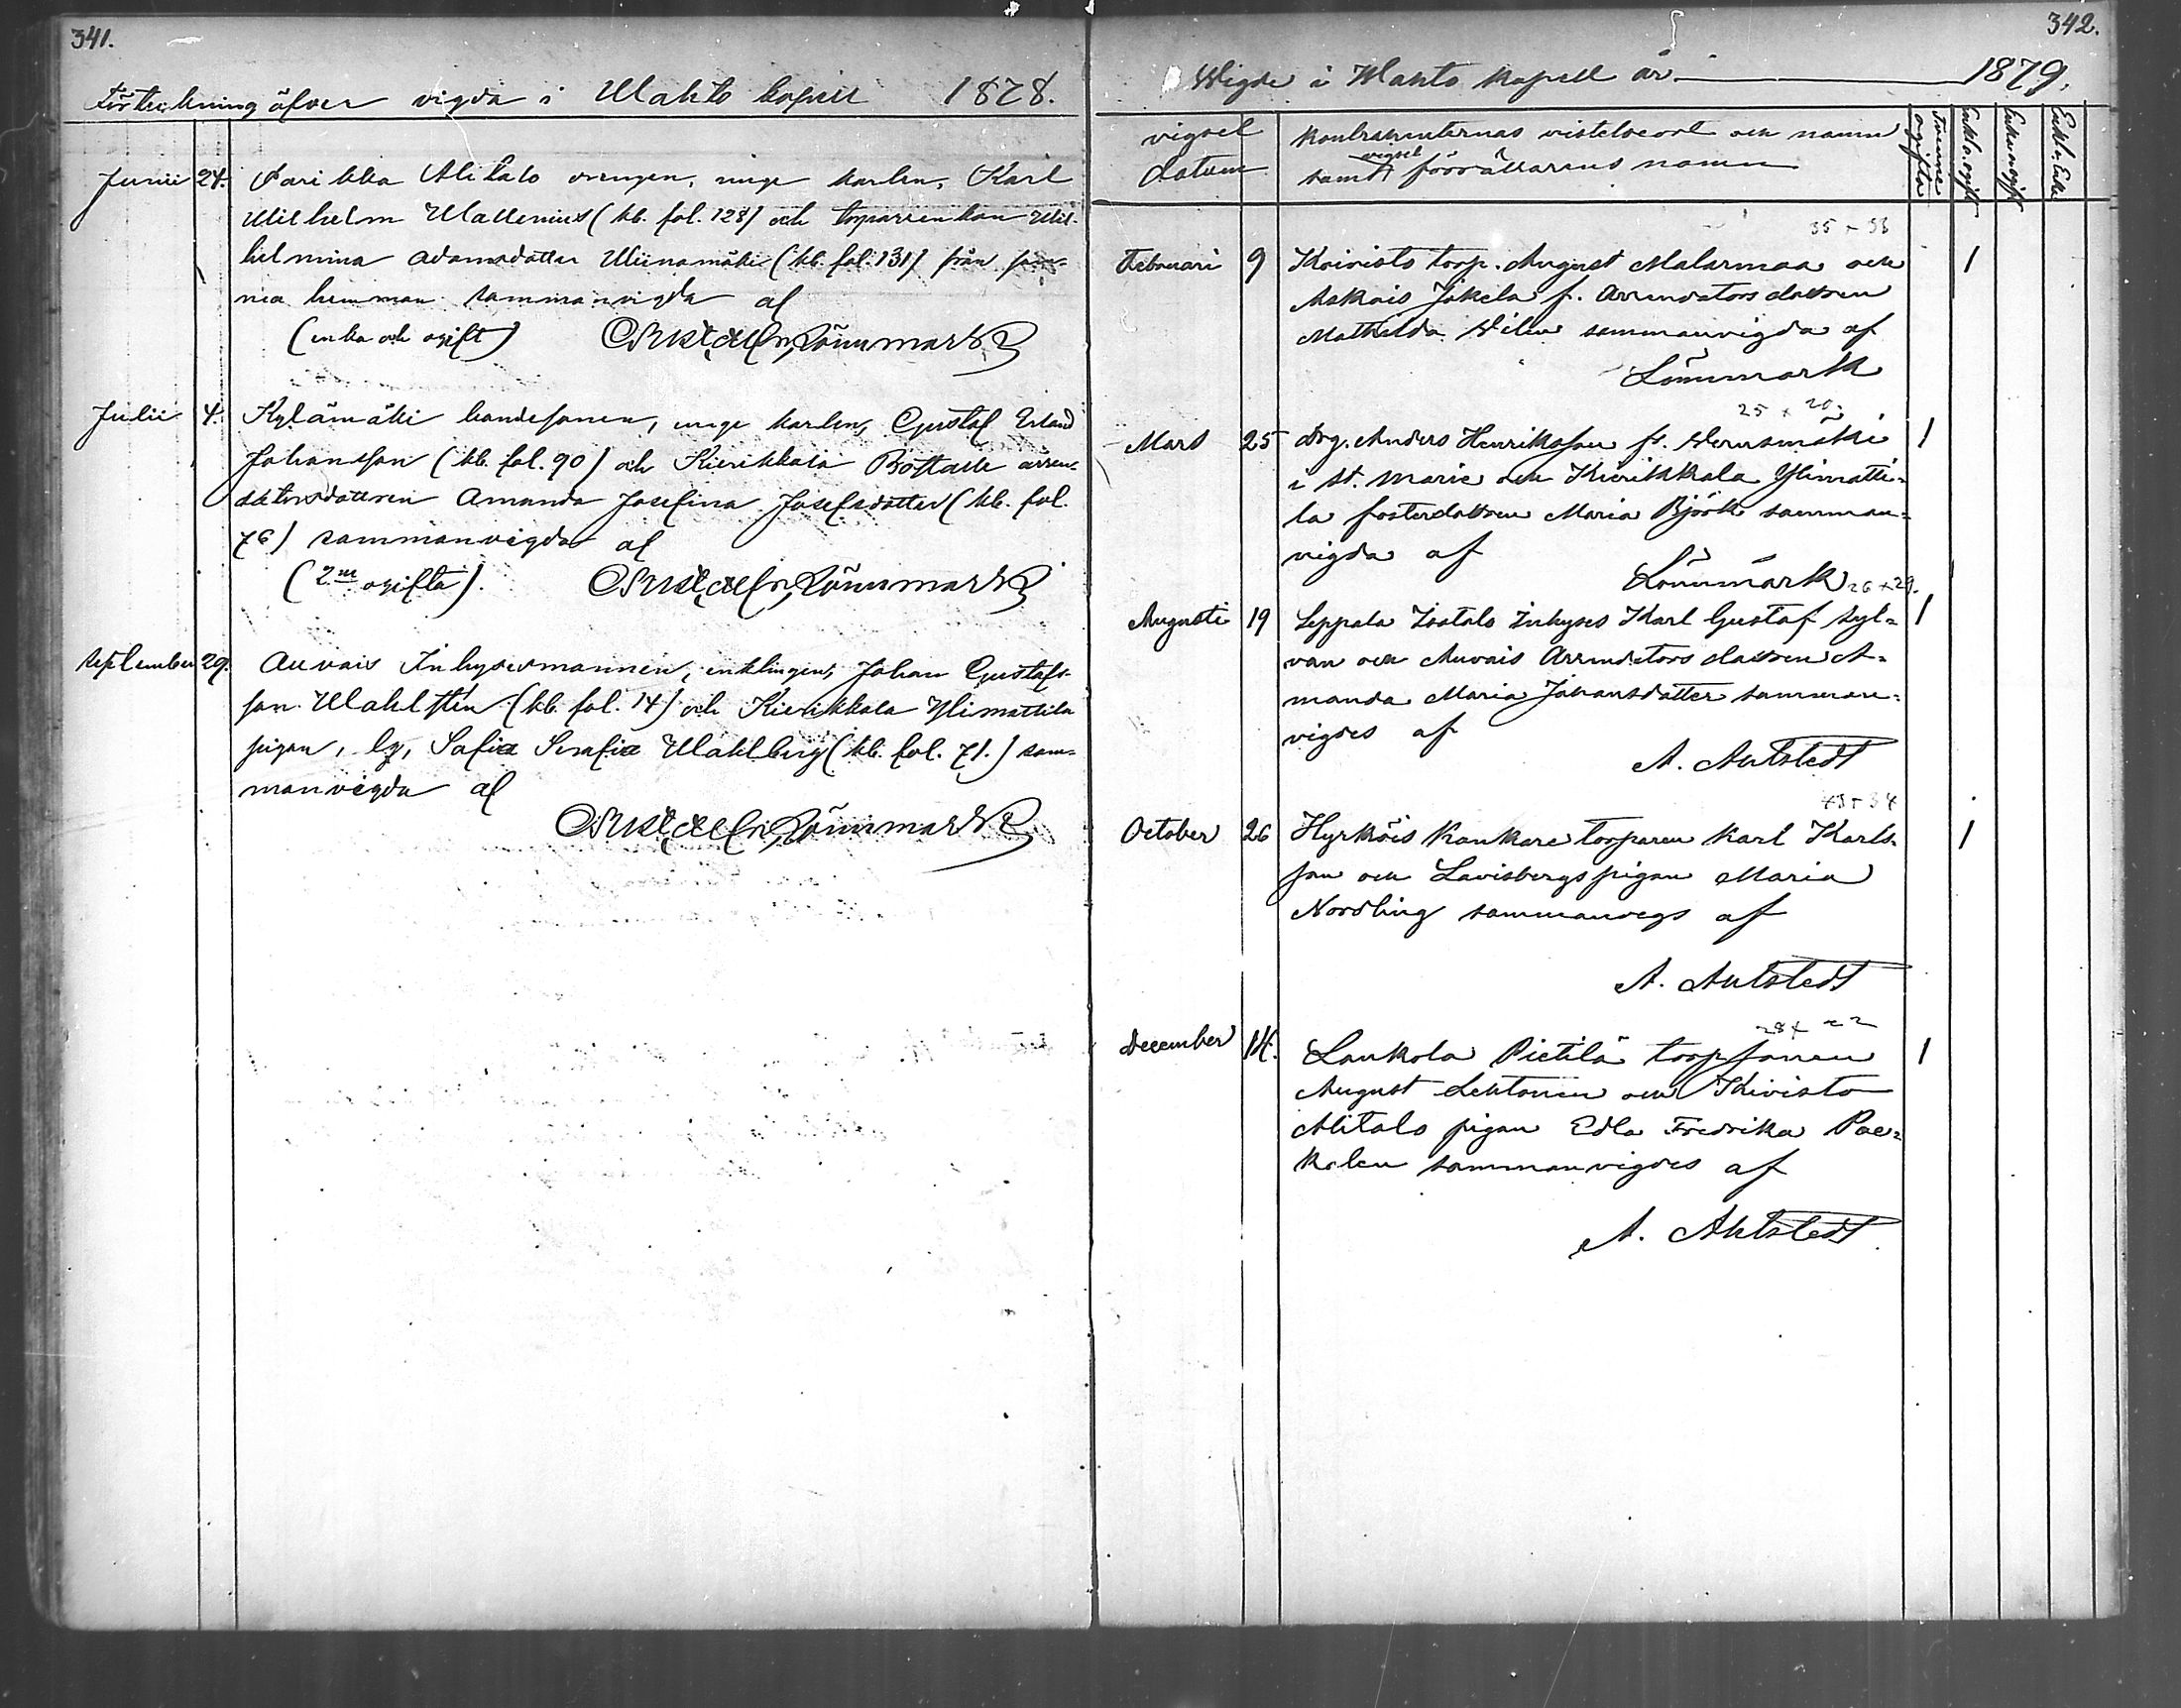 341.
Förteckning öfver vigda i Wahto kapell 1878.
Junii 24. Parikka Alitalo drengen, unge karlen, Karl
Wilhelm Wallenius (kb. fol. 128) och torpareenkan Wil-
helmina Adamsdotter Wiinamäki (kb. fol. 131) från sam-
ma hemman sammanvigda af
(enka och ogift) Lönnmark
Julii 4. Kylämäki bondesonen, unge karlen, Gustaf Erland
Johansson (kb. fol. 90) och Kierikkala arren-
datorsdottren Amanda Josefina Josefsdotter (kb. fol.
76) sammanvigda af
(2ne ogifta). Lönnmark
September 29. Auvais Inhysesmannen, enklingen, Johan Gustafs-
son Wahlstén (kb. fol. 14) och Kierikkala Ylimattila
pigan, Sofia Serafia Wahlberg (kb. fol. 71.) sam-
manvigda af
Lönnmark
342.
Wigde i Wahto kapell år 1879.
vigsel datum
kontrahenternas vistelseort och namn
samt vigsel förrättarens namn
Tvenne ogifta
Enkl. o. ogift
Enka o. ogift
Enkl. o. Enka
35 + 33
Februari 9 Koivisto torp. August Malarmaa och 1
Askais Jokela f. Arrendators dottren
Mathilda Wilen sammanvigda af
Lönnmark
25 + 20
Mars 25 drg. Anders Henriksson fr. Wernsmäki 1
i St. Marie och Kierikkala Ylimatti-
la fosterdottren Maria Björk samman-
vigda af
Lönnmark
26 + 29.
Augusti 19 Leppälä Isotalo Inhyses Karl Gustaf Syl- 1
van och Auvais Arrendators dottren A-
manda Maria Johansdotter samman-
vigdes af
A. Ahlstedt
43 + 34
October 26 Hyrköis Kankare torparen Karl Karls- 1
son och Lavisbergs pigan Maria
Nordling sammanvegs af
A. Ahlstedt
28 + 22
December 14. Laukola Pietilä torpsonen 1
August Lehtonen och Kivisto
Alitalo pigan Edla Fredrika Pae-
kolen sammanvigdes af
A. Ahlstedt.